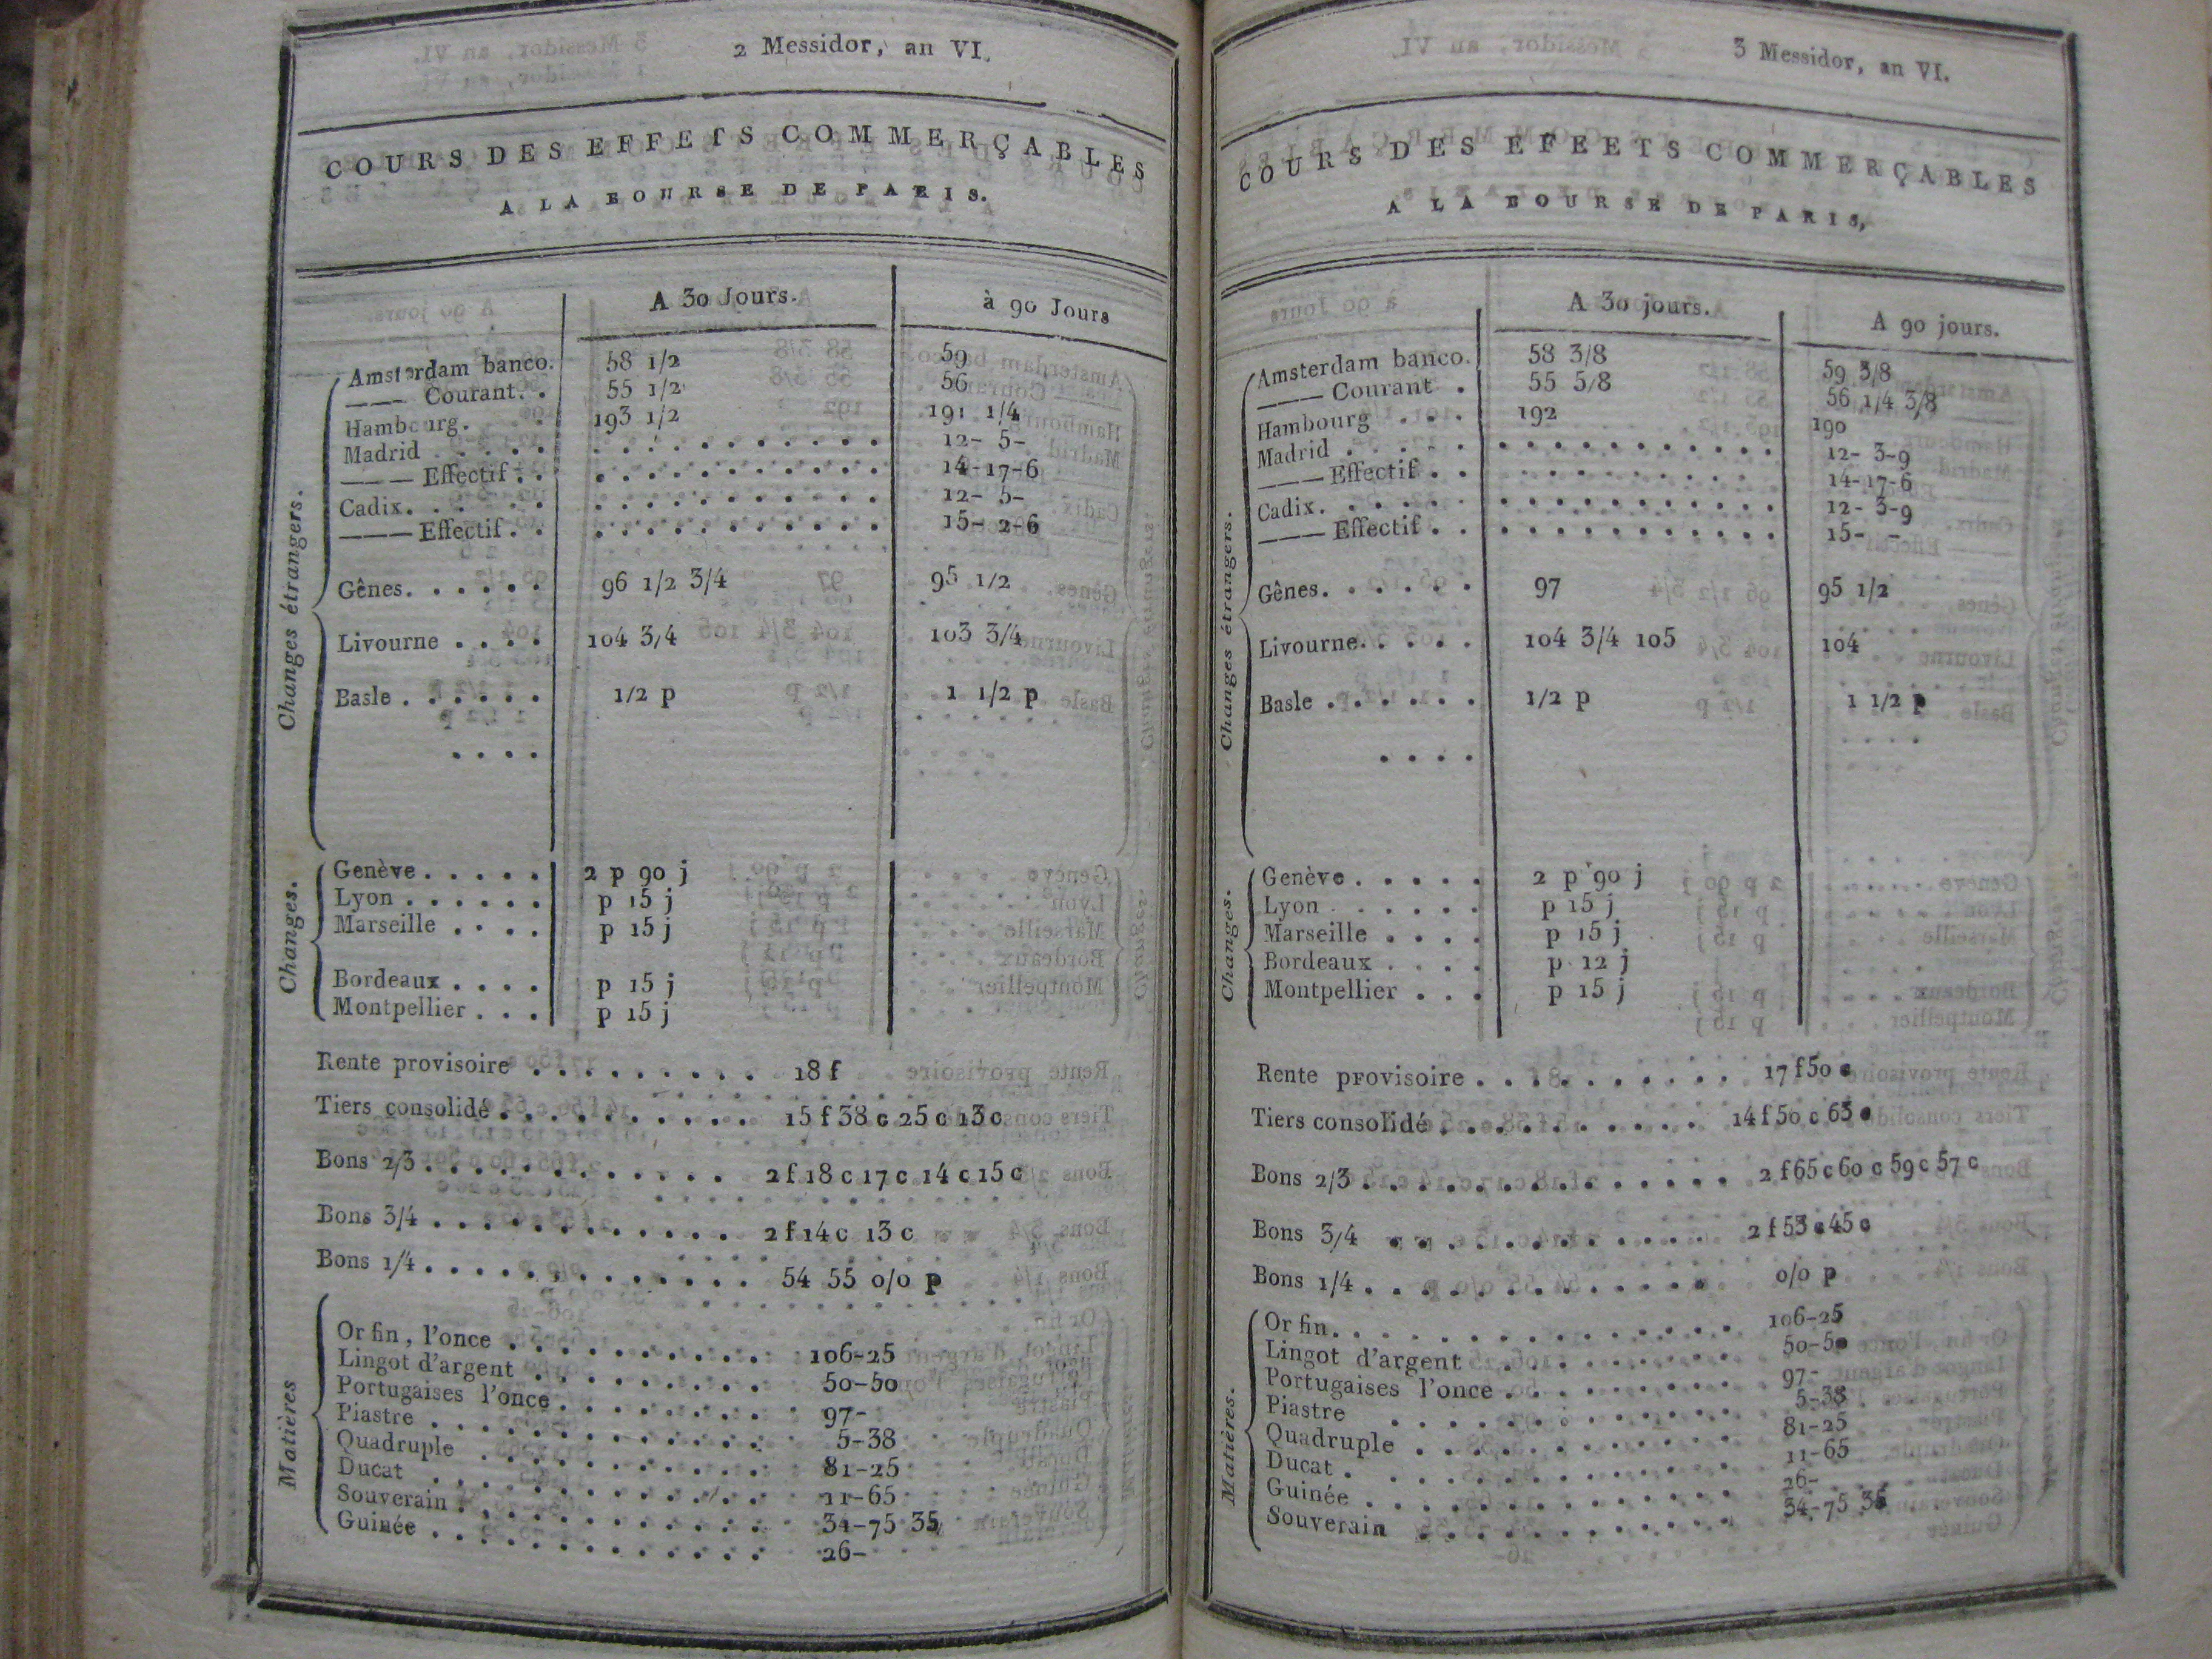 2 Messidor, an VI.
COURS DES EFFETS COMMERÇABLES
A LA BOURSE DE PARIS.
A 30 Jours. à 90 Jours
Changes étrangers.
Amsterdam banco. 58 1/2 59
——— Courant. . 55 1/2 56
Hambourg. . . 193 1/2 191 1/4
Madrid . . . . . 12- 5-
——— Effectif . . 14-17-6
Cadix. . . . . . 12- 5-
——— Effectif . . 15- 2-6
Gênes. . . . . . 96 1/2 3/4 95 1/2
Livourne . . . . 104 3/4 103 3/4
Basle . . . . . . 1/2 p 1 1/2 p
. . . .
Changes.
Genève . . . . . 2 p 90 j
Lyon . . . . . . p 15 j
Marseille . . . . p 15 j
Bordeaux . . . . p 15 j
Montpellier . . . p 15 j
Rente provisoire . . . . . . . . . 18 f
Tiers consolidé . . . . . . . . . . 15 f 38 c 25 c 13 c
Bons 2/3 . . . . . . . . . . . . 2 f 18 c 17 c 14 c 15 c
Bons 3/4 . . . . . . . . . . . . 2 f 14 c 13 c
Bons 1/4 . . . . . . . . . . . . . 54 55 o/o p
Matières
Or fin, l'once . . . . . . . . . . 106-25
Lingot d'argent . . . . . . . . . 50-50
Portugaises l'once . . . . . . . . 97-
Piastre . . . . . . . . . . . . . 5-38
Quadruple . . . . . . . . . . . 81-25
Ducat . . . . . . . . . . . . . 11-65
Souverain . . . . . . . . . . . . 34-75 35
Guinée . . . . . . . . . . . . . 26-
3 Messidor, an VI.
COURS DES EFEETS COMMERÇABLES
A LA BOURSE DE PARIS,
A 30 jours. A 90 jours.
Changes étrangers.
Amsterdam banco. 58 3/8 59 3/8
——— Courant . 55 5/8 56 1/4 3/8
Hambourg . . . 192 190
Madrid . . . . . 12- 3-9
——— Effectif . . 14-17-6
Cadix. . . . . . 12- 3-9
——— Effectif . . 15- -
Gênes. . . . . . 97 95 1/2
Livourne. . . . . 104 3/4 105 104
Basle . . . . . . 1/2 p 1 1/2 p
. . . .
Changes.
Genève . . . . . 2 p 90 j
Lyon . . . . . . p 15 j
Marseille . . . . p 15 j
Bordeaux . . . . p 12 j
Montpellier . . . p 15 j
Rente provisoire . . . . . . . . . . 17 f 50 c
Tiers consolidé . . . . . . . . . . 14 f 50 c 63 c
Bons 2/3 . . . . . . . . . . . . . 2 f 65 c 60 c 59 c 57 c
Bons 3/4 . . . . . . . . . . . . 2 f 53 c 45 c
Bons 1/4 . . . . . . . . . . . . . o/o p
Matières.
Or fin. . . . . . . . . . . . . . . 106-25
Lingot d'argent . . . . . . . . . . 50-50
Portugaises l'once . . . . . . . . . 97-
Piastre . . . . . . . . . . . . . 5-38
Quadruple . . . . . . . . . . . . 81-25
Ducat . . . . . . . . . . . . . . 11-65
Guinée . . . . . . . . . . . . . . 26-
Souverain . . . . . . . . . . . . 34-75 35